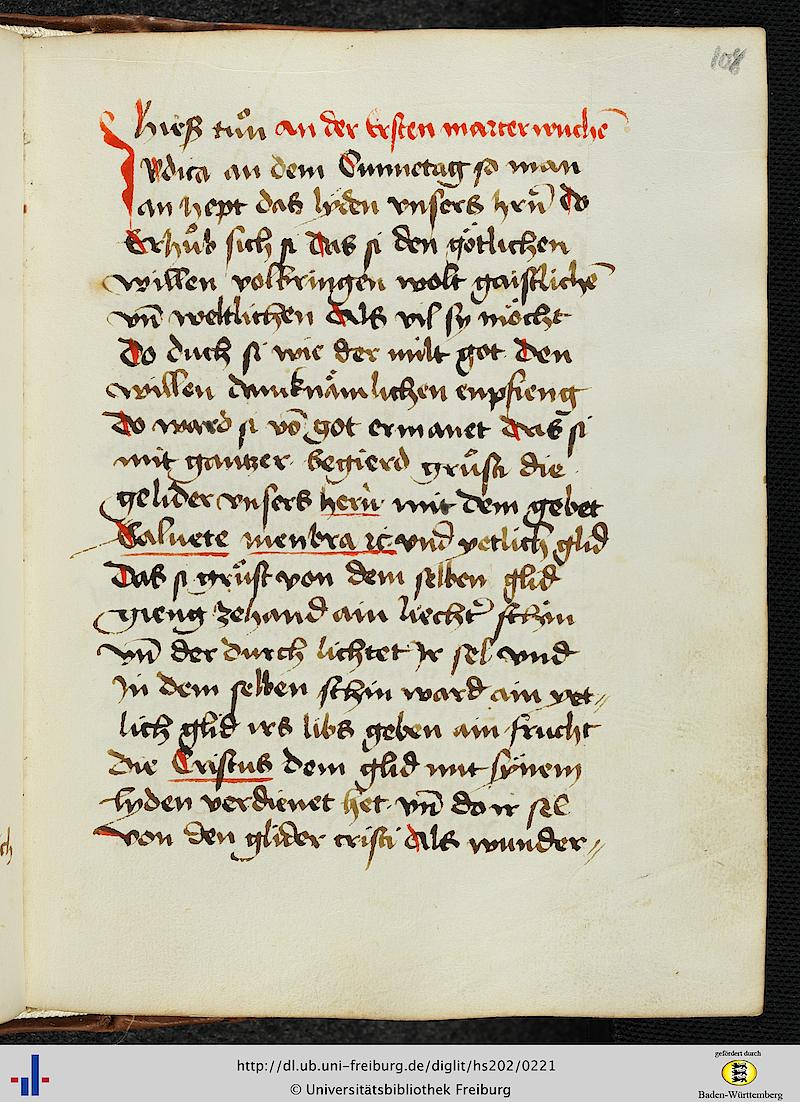 108
hieß tuͦn an der ersten marterwuchē
Judica an dem Sunnetag so man
an hept das lyden vnsers hrn̄ do
Erhuͦb sich si das si den götlichen
willen volbringen wolt gaistlichē
vn̄ weltlichen Als vil sy möcht
Do duch si wie der milt got den
willen dancknämlichen enpfieng
Do ward si vō got ermanet das si
mit gantzer begierd gruͤsti die
gelider vnsers hern̄ mit dem gebet
Saluete menbra ⁊c vnd yetlich glid
Das si gruͤst von dem selben glid
gieng zehand ain liecht schin
vn̄ der durch lichtet Jr sel vnd
Jn dem selben schin ward ain yet〃
lich glid irs libs geben ain frucht
die Cristus dem glid mit synem
lyden verdienet het vn̄ do ir sel
von den glider cristi Als wunder〃
http://dl.ub.uni-freiburg.de/diglit/hs202/0221
© Universitätsbibliothek Freiburg
gefördert durch
Baden-Württemberg